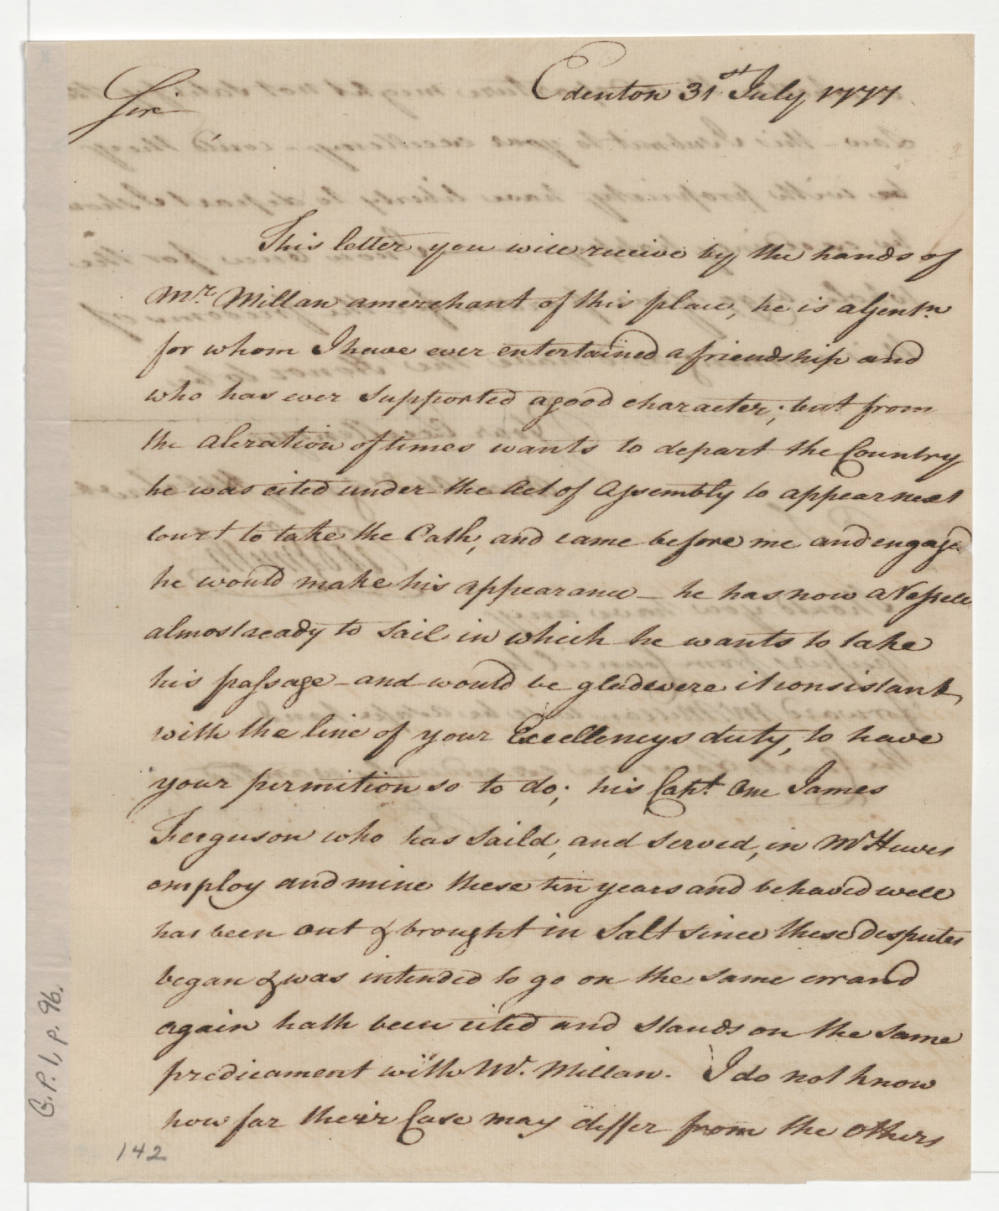 Edenton 31st July 1777
Sir
This letter you will receive by the hands of
Mr. Millan a merchant of this place, he is a Gentn
for whom I have ever entertained a friendship and
who has ever supported a good character; but from
the aleration of times wants to depart the Country
he was cited under the Act of Assembly to appear next
court to take the Oath, and came before me and engag'd
he would make his appearance – he has now a Vessell
almost ready to sail in which he wants to take
his passage – and would be glad were it consistant
with the line of your Excellencys duty, to have
your permition so to do; his Capt. One James
Ferguson who has saild, and served, in Mr Hewes
employ and mine these ten years and behaved well
has been out & brought in Salt since these disputes
began & was intended to go on the same errand
again hath been cited and stands on the same
predicament with Mr. Millan. I do not know
how far their Case may differ from the others
G.P. 1, p. 96.
142